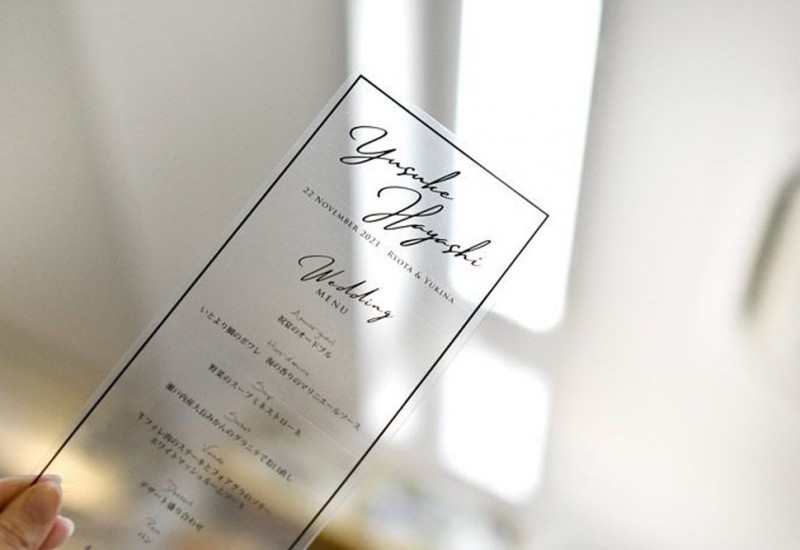 Yusuke
Hayashi
22 NOVEMBER 2023 RYOTA & YUKINA
Wedding
MENU
祝宴のオードブル
いとより鯛のポワレ 海の香りのマリニエールソース
Soup
野菜のスープミネストローネ
瀬戸内産大長みかんのグラニテでお口直し
Viande
牛フィレ肉のステーキとフォアグラのソテー
ホワイトマッシュルームソース
Dessert
デザート盛り合わせ
Pain
パン